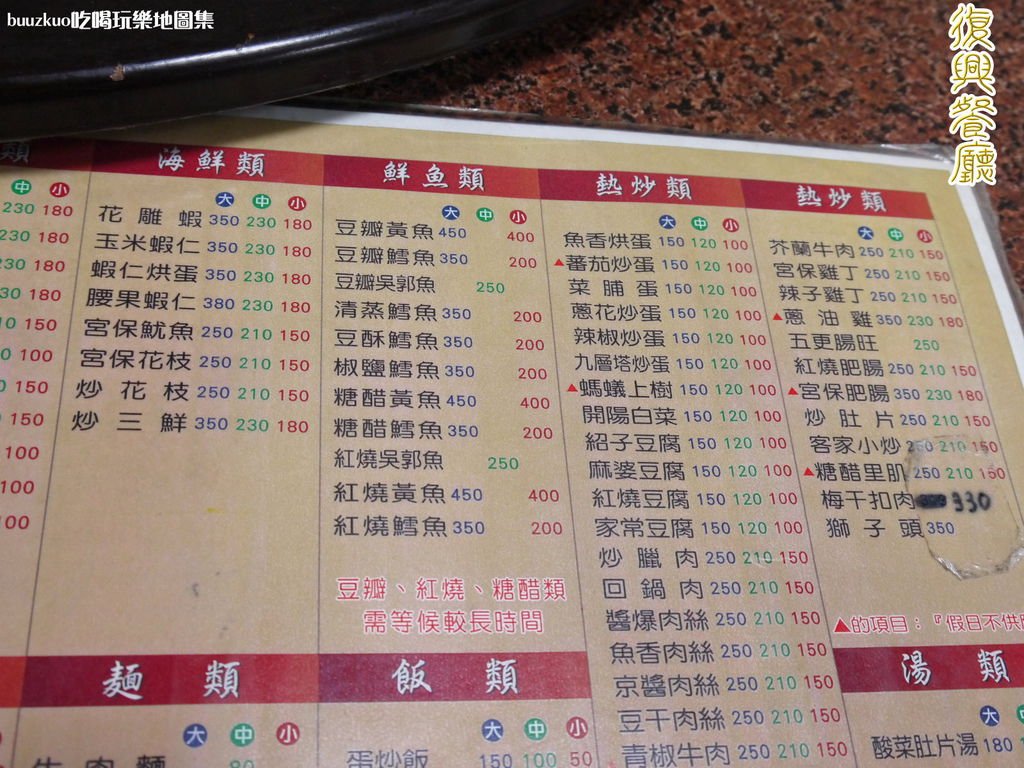 buuzkuo吃喝玩樂地圖集
復興餐廳
類
中 小
230 180
230 180
230 180
30 180
10 150
0 100
0 150
0 150
100
100
100
海鮮類
大 中 小
花雕蝦 350 230 180
玉米蝦仁 350 230 180
蝦仁烘蛋 350 230 180
腰果蝦仁 380 230 180
宮保魷魚 250 210 150
宮保花枝 250 210 150
炒花枝 250 210 150
炒三鮮 350 230 180
鮮魚類
大 中 小
豆瓣黃魚 450 400
豆瓣鱈魚 350 200
豆瓣吳郭魚 250
清蒸鱈魚 350 200
豆酥鱈魚 350 200
椒鹽鱈魚 350 200
糖醋黃魚 450 400
糖醋鱈魚 350 200
紅燒吳郭魚 250
紅燒黃魚 450 400
紅燒鱈魚 350 200
豆瓣、紅燒、糖醋類
需等候較長時間
熱炒類
大 中 小
魚香烘蛋 150 120 100
▲蕃茄炒蛋 150 120 100
菜脯蛋 150 120 100
蔥花炒蛋 150 120 100
辣椒炒蛋 150 120 100
九層塔炒蛋 150 120 100
▲螞蟻上樹 150 120 100
開陽白菜 150 120 100
紹子豆腐 150 120 100
麻婆豆腐 150 120 100
紅燒豆腐 150 120 100
家常豆腐 150 120 100
炒臘肉 250 210 150
回鍋肉 250 210 150
醬爆肉絲 250 210 150
魚香肉絲 250 210 150
京醬肉絲 250 210 150
豆干肉絲 250 210 150
青椒牛肉 250 210 150
熱炒類
大 中 小
芥蘭牛肉 250 210 150
宮保雞丁 250 210 150
辣子雞丁 250 210 150
▲蔥油雞 350 230 180
五更腸旺 250
紅燒肥腸 250 210 150
▲宮保肥腸 350 230 180
炒肚片 250 210 150
客家小炒 250 210 150
▲糖醋里肌 250 210 150
梅干扣肉 330
獅子頭 350
▲的項目:『假日不供
麵類
大 中 小
牛肉麵 80
飯類
大 中 小
蛋炒飯 150 100 50
湯類
大 中
酸菜肚片湯 180 1